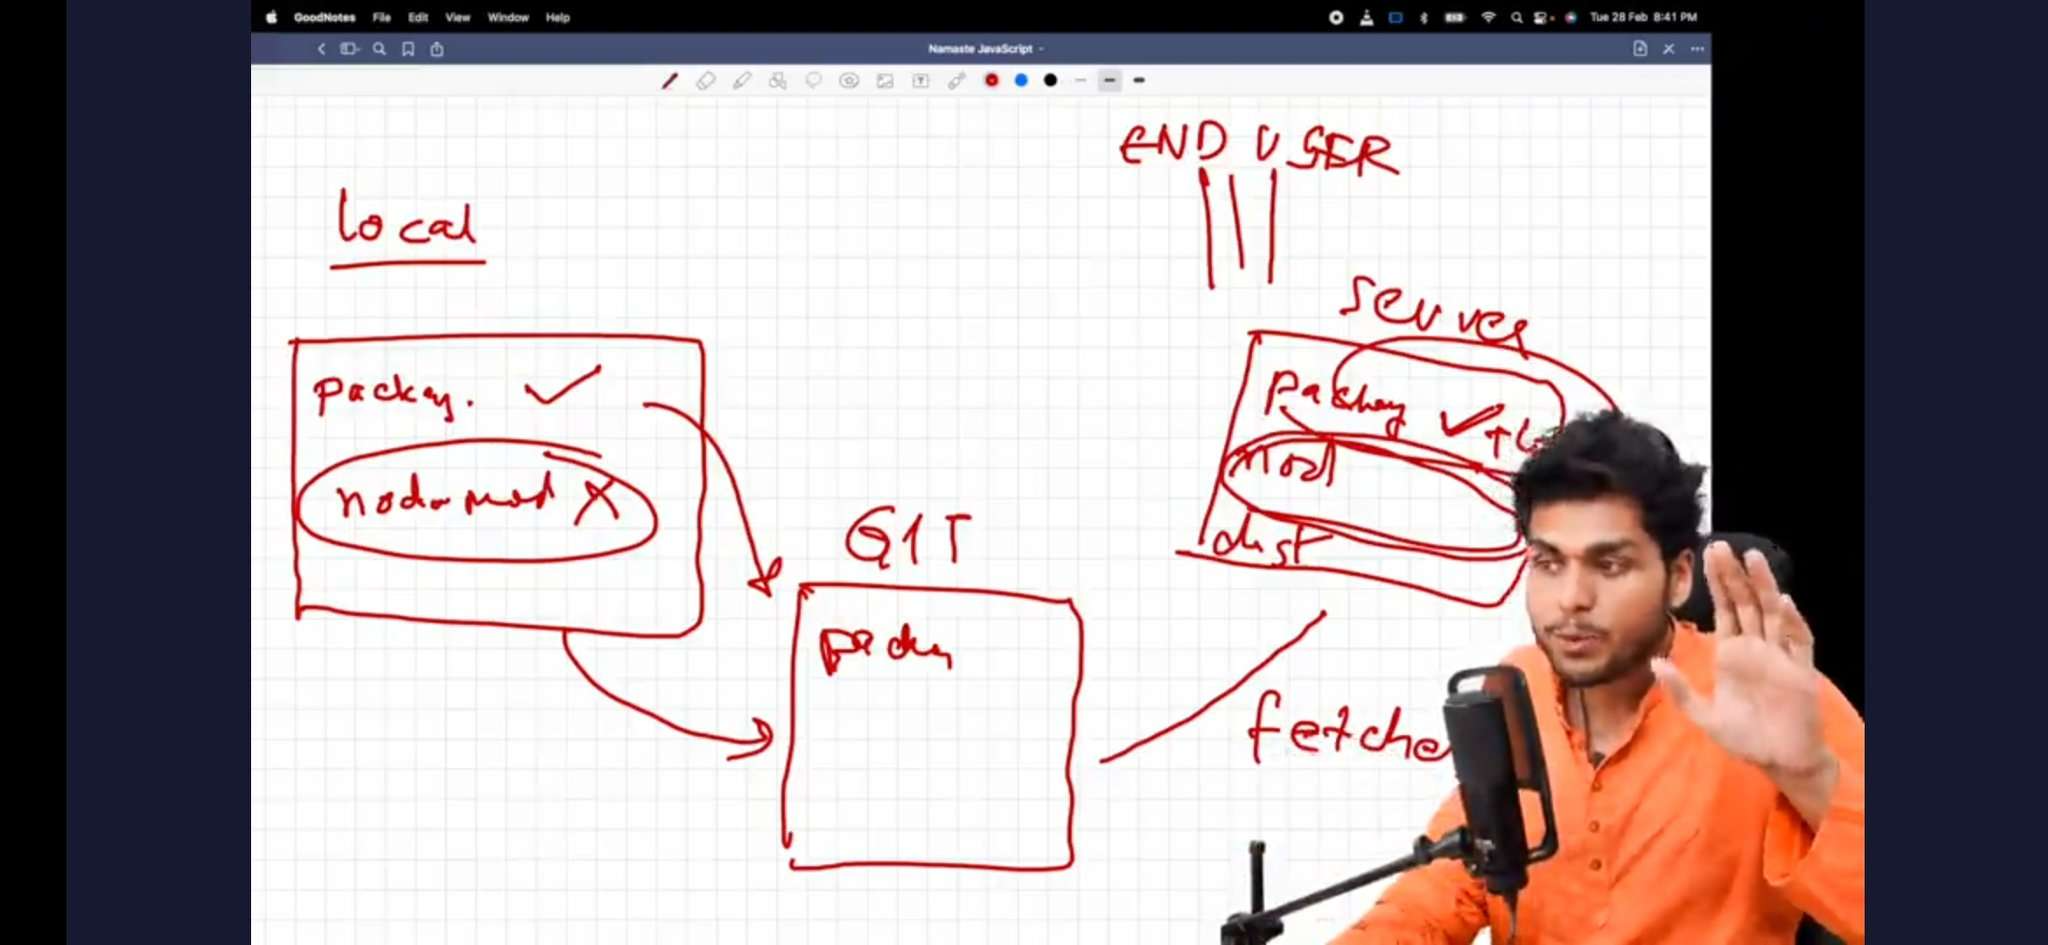 GoodNotes File Edit View Window Help
Tue 28 Feb 8:41 PM
Namaste JavaScript
END USER
local
server
packag.
node mod X
packag
nod
dist
GIT
fetche